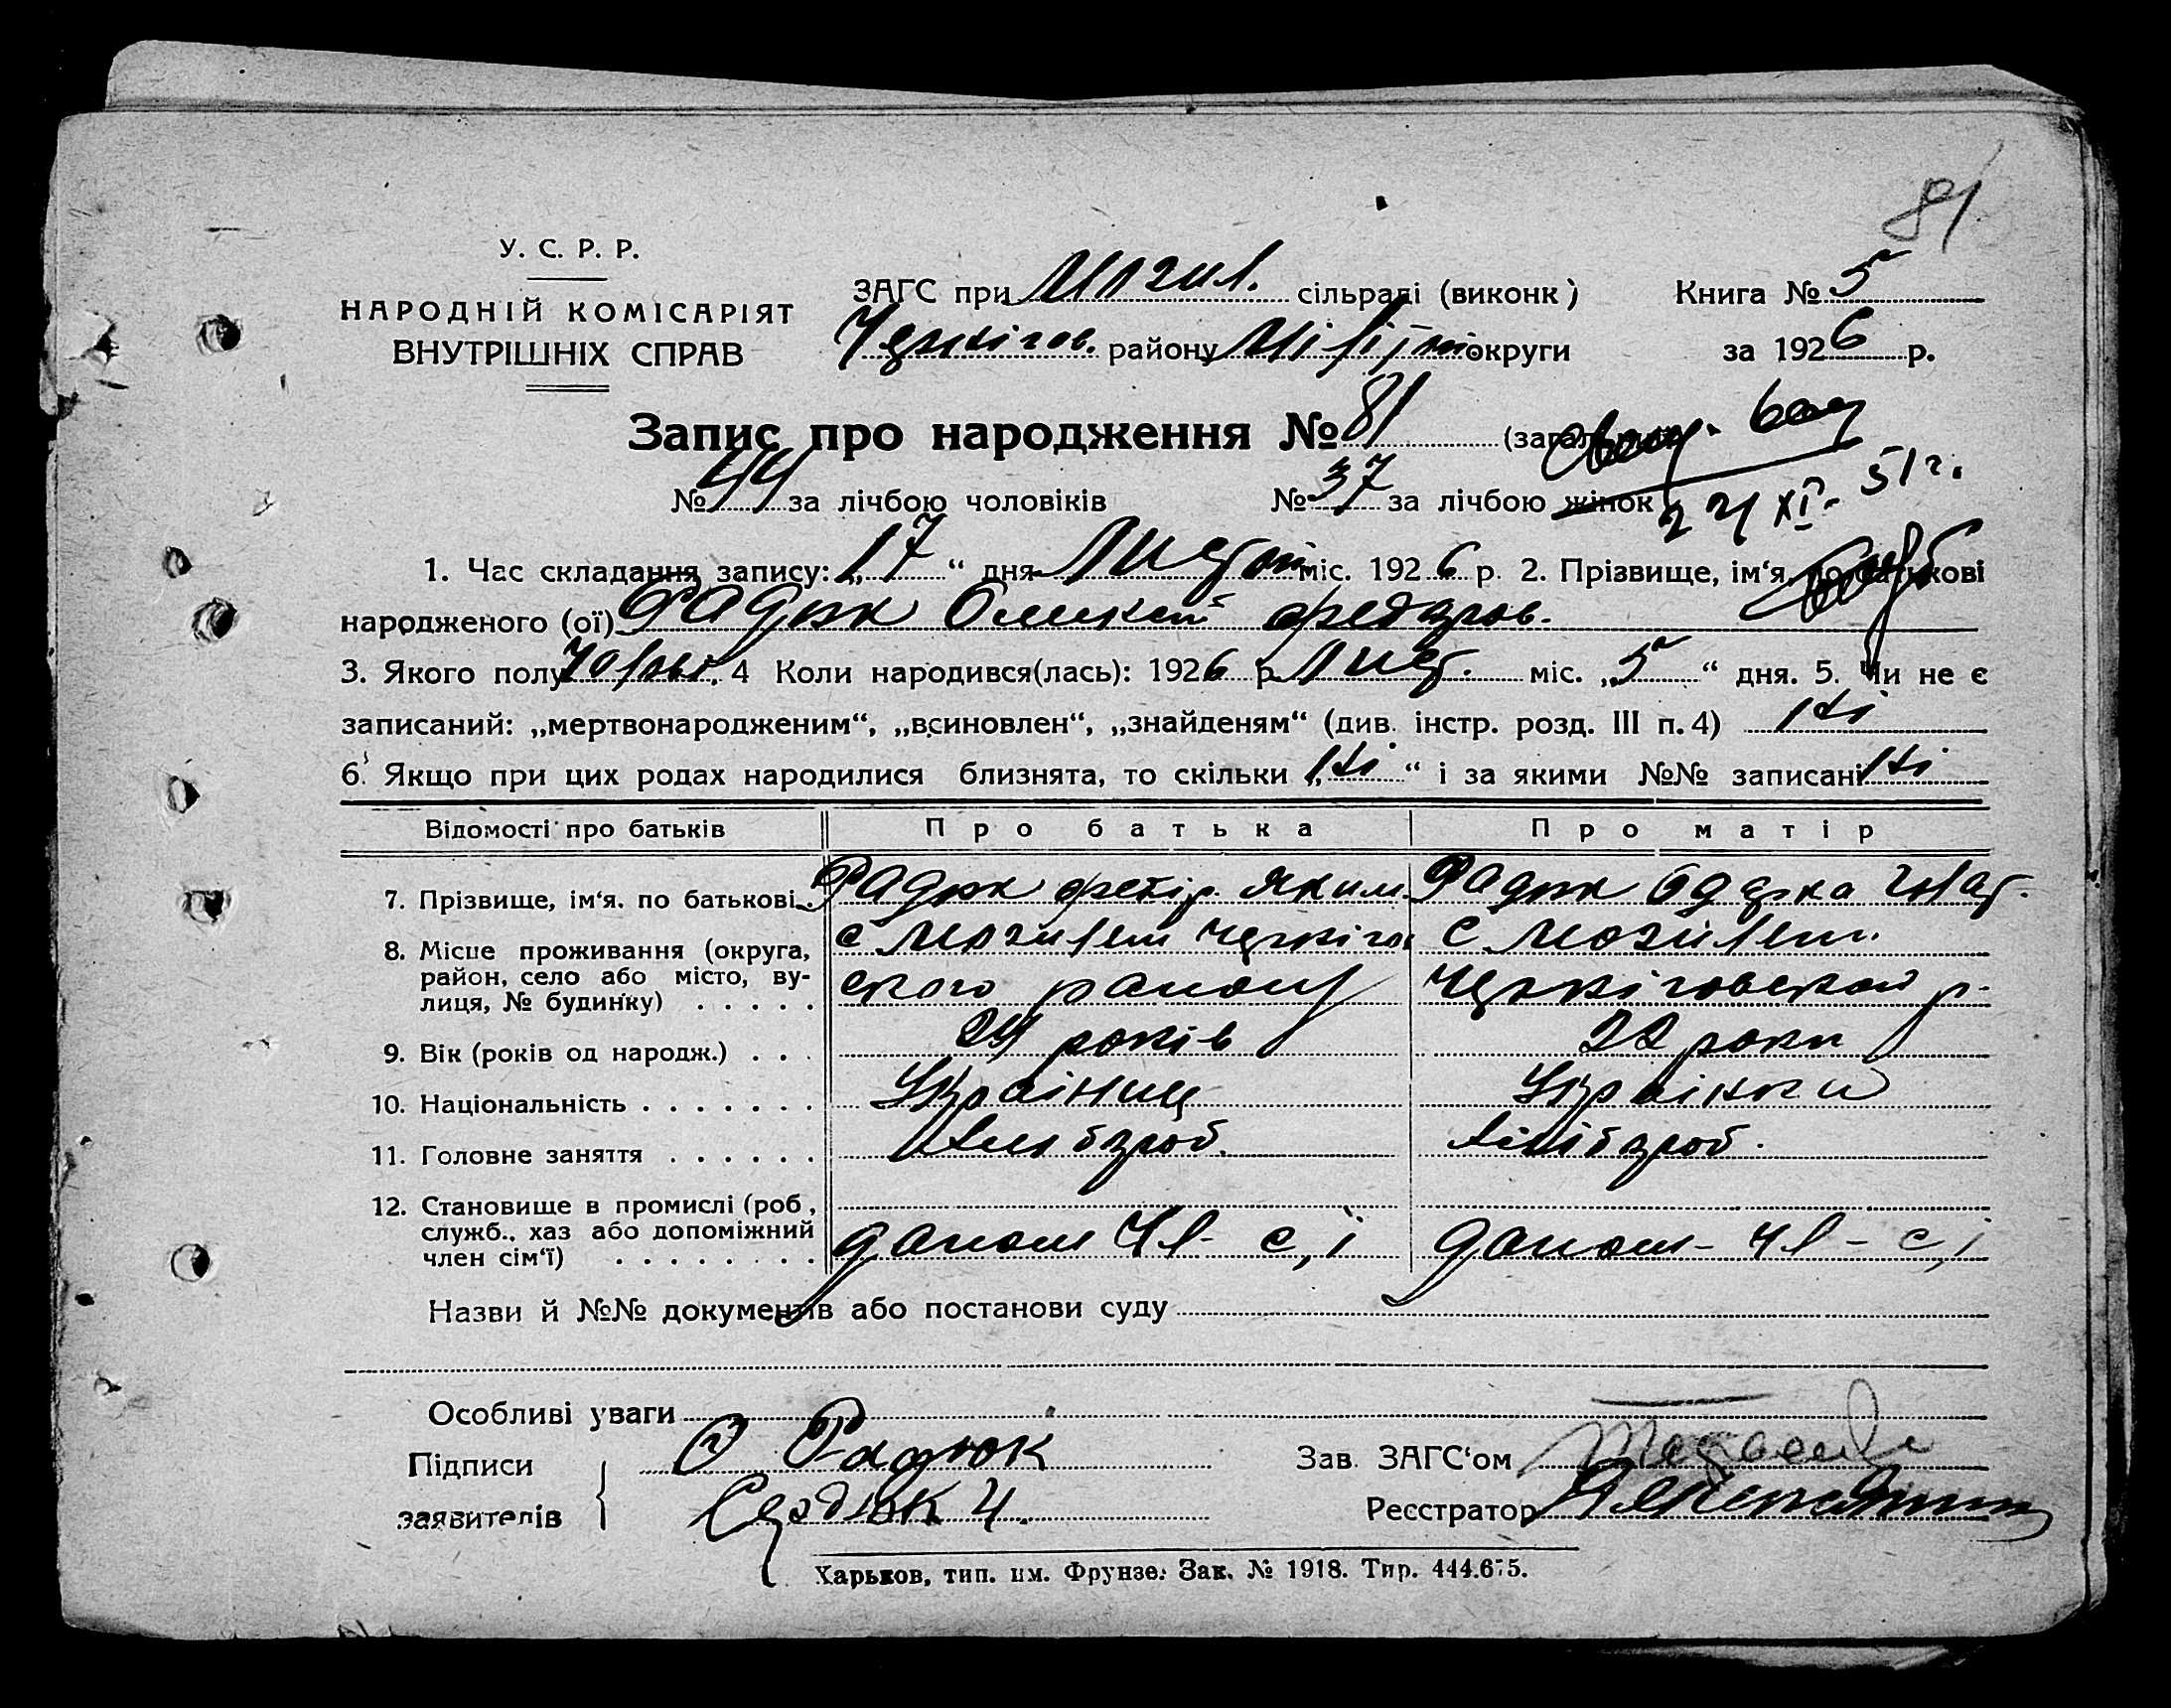 81
У. С. Р. Р.
НАРОДНІЙ КОМІСАРІЯТ
ВНУТРІШНІХ СПРАВ
ЗАГС при Могил. сільраді (виконк)
Чернігов. району округи
Книга № 5
за 1926 р.
Запис про народження № 81
№ 44 за лічбою чоловіків № 37 за лічбою жінок
XI- 51 г.
1. Час складання запису: „17“ дня Лист міс. 1926 р. 2. Прізвище, ім‘я, по батькові
народженого (ої) Радюк Олексій Федоров.
3. Якого полу 4 Коли народився(лась): 1926 р. Лист. міс. „5“ дня. 5. Чи не є
записаний: „мертвонародженим“, „всиновлен“, „знайденям“ (див. інстр. розд. III п. 4) Ні
6. Якщо при цих родах народилися близнята, то скільки „Ні“ і за якими №№ записані Ні
Відомості про батьків Про батька Про матір
7. Прізвище, ім‘я. по батькові. Радюк Федір Яким. Радюк
8. Місце проживання (округа, район, село або місто, вулиця, № будинку) с Могилети Чернігов
ского району
с Могилети
Чернігов р.
9. Вік (років од народж.) 24 років 22 роки
10. Національність Українец Українки
11. Головне заняття хлібороб. хлібороб.
12. Становище в промислі (роб, служб., хаз або допоміжний член сім‘ї) чл- с, і чл - с, і
Назви й №№ документів або постанови суду
Особливі уваги
Підписи заявителів Радюк
Сердюк
Зав. ЗАГС‘ом
Реєстратор
Харьков, тип. им. Фрунзе. Зак. № 1918. Тир. 444.675.